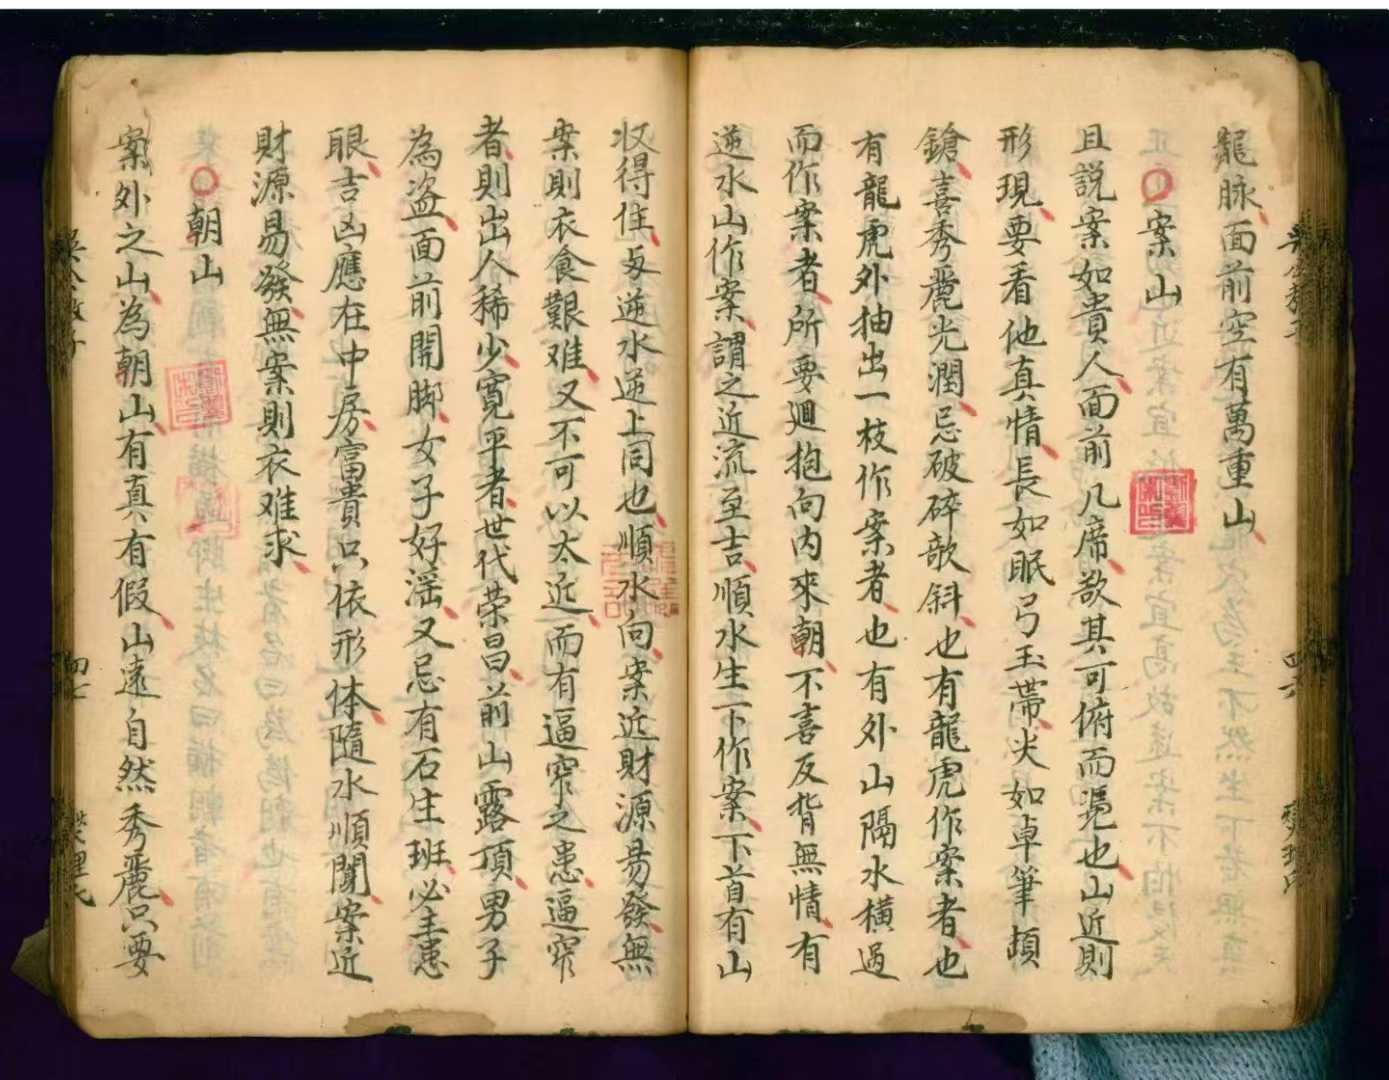 龍脉面前空有萬重山
○案山
且說案如貴人面前几席欲其可俯而凴也山近則
形現要看他真情長如眠弓玉帶尖如卓筆頓
鎗喜秀麗光潤忌破碎欹斜也有龍虎作案者也
有龍虎外抽出一枝作案者也有外山隔水橫過
而作案者所要廻抱向内來朝不喜反背無情有
逆水山作案謂之近流至吉順水生一卜作案下首有山
収得住与逆水逆上同也順水向案近財源易發無
案則衣食艱难又不可以太近而有逼窄之患逼窄
者則出人稀少寛平者世代荣昌前山露頂男子
為盗面前開脚女子好滛又忌有石生班必主患
眼吉凶應在中房富貴只依形体隨水順関案近
財源易發無案則衣难求
○朝山
案外之山為朝山有真有假山遠自然秀麗只要
四七